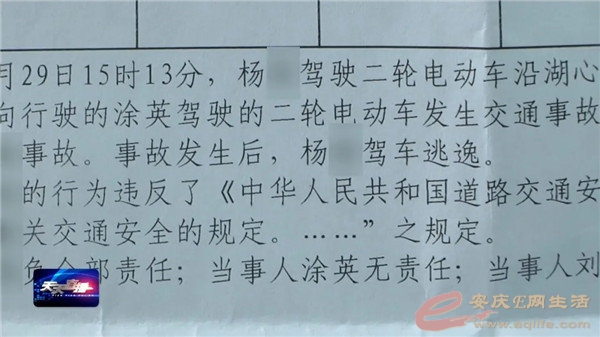 月29日15时13分，杨 驾驶二轮电动车沿湖心
向行驶的涂英驾驶的二轮电动车发生交通事故
事故。事故发生后，杨 驾车逃逸。
的行为违反了《中华人民共和国道路交通安
关交通安全的规定。……”之规定。
负全部责任；当事人涂英无责任；当事人刘
天天直播
安庆E网生活
www.aqlife.com